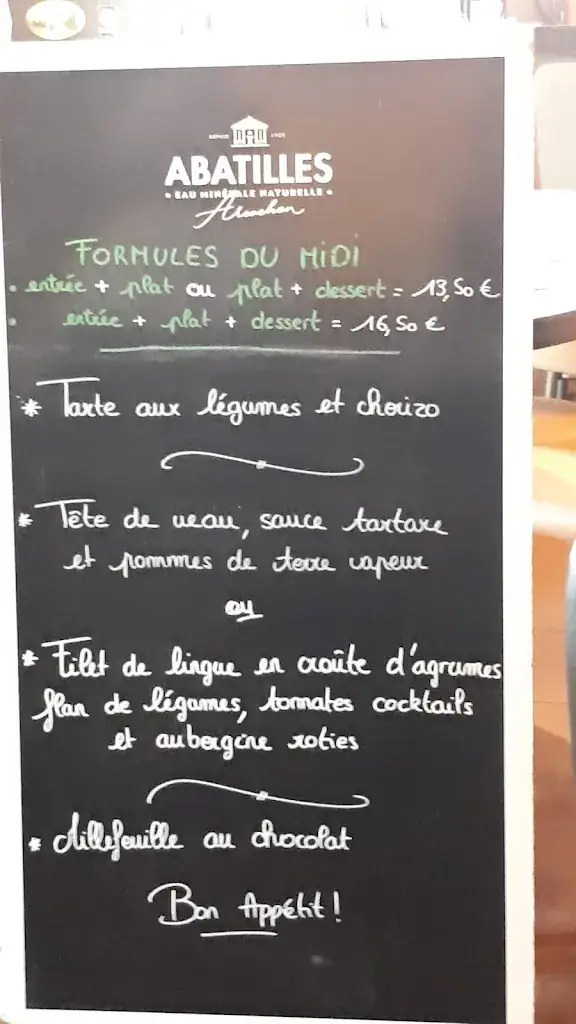 DEPUIS 1925
ABATILLES
• EAU MINÉRALE NATURELLE •
Arcachon
FORMULES DU MIDI
• entrée + plat ou plat + dessert = 13,50 €
• entrée + plat + dessert = 16,50 €
* Tarte aux légumes et chorizo
* Tête de veau, sauce tartare
et pommes de terre vapeur
ou
* Filet de lingue en croûte d'agrumes
flan de légumes, tomates cocktails
et aubergine roties
* Millefeuille au chocolat
Bon Appétit !